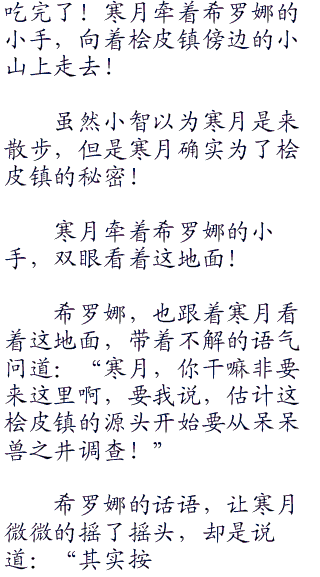 吃完了！寒月牵着希罗娜的
小手，向着桧皮镇傍边的小
山上走去！
虽然小智以为寒月是来
散步，但是寒月确实为了桧
皮镇的秘密！
寒月牵着希罗娜的小
手，双眼看着这地面！
希罗娜，也跟着寒月看
着这地面，带着不解的语气
问道：“寒月，你干嘛非要
来这里啊，要我说，估计这
桧皮镇的源头开始要从呆呆
兽之井调查！”
希罗娜的话语，让寒月
微微的摇了摇头，却是说
道：“其实按